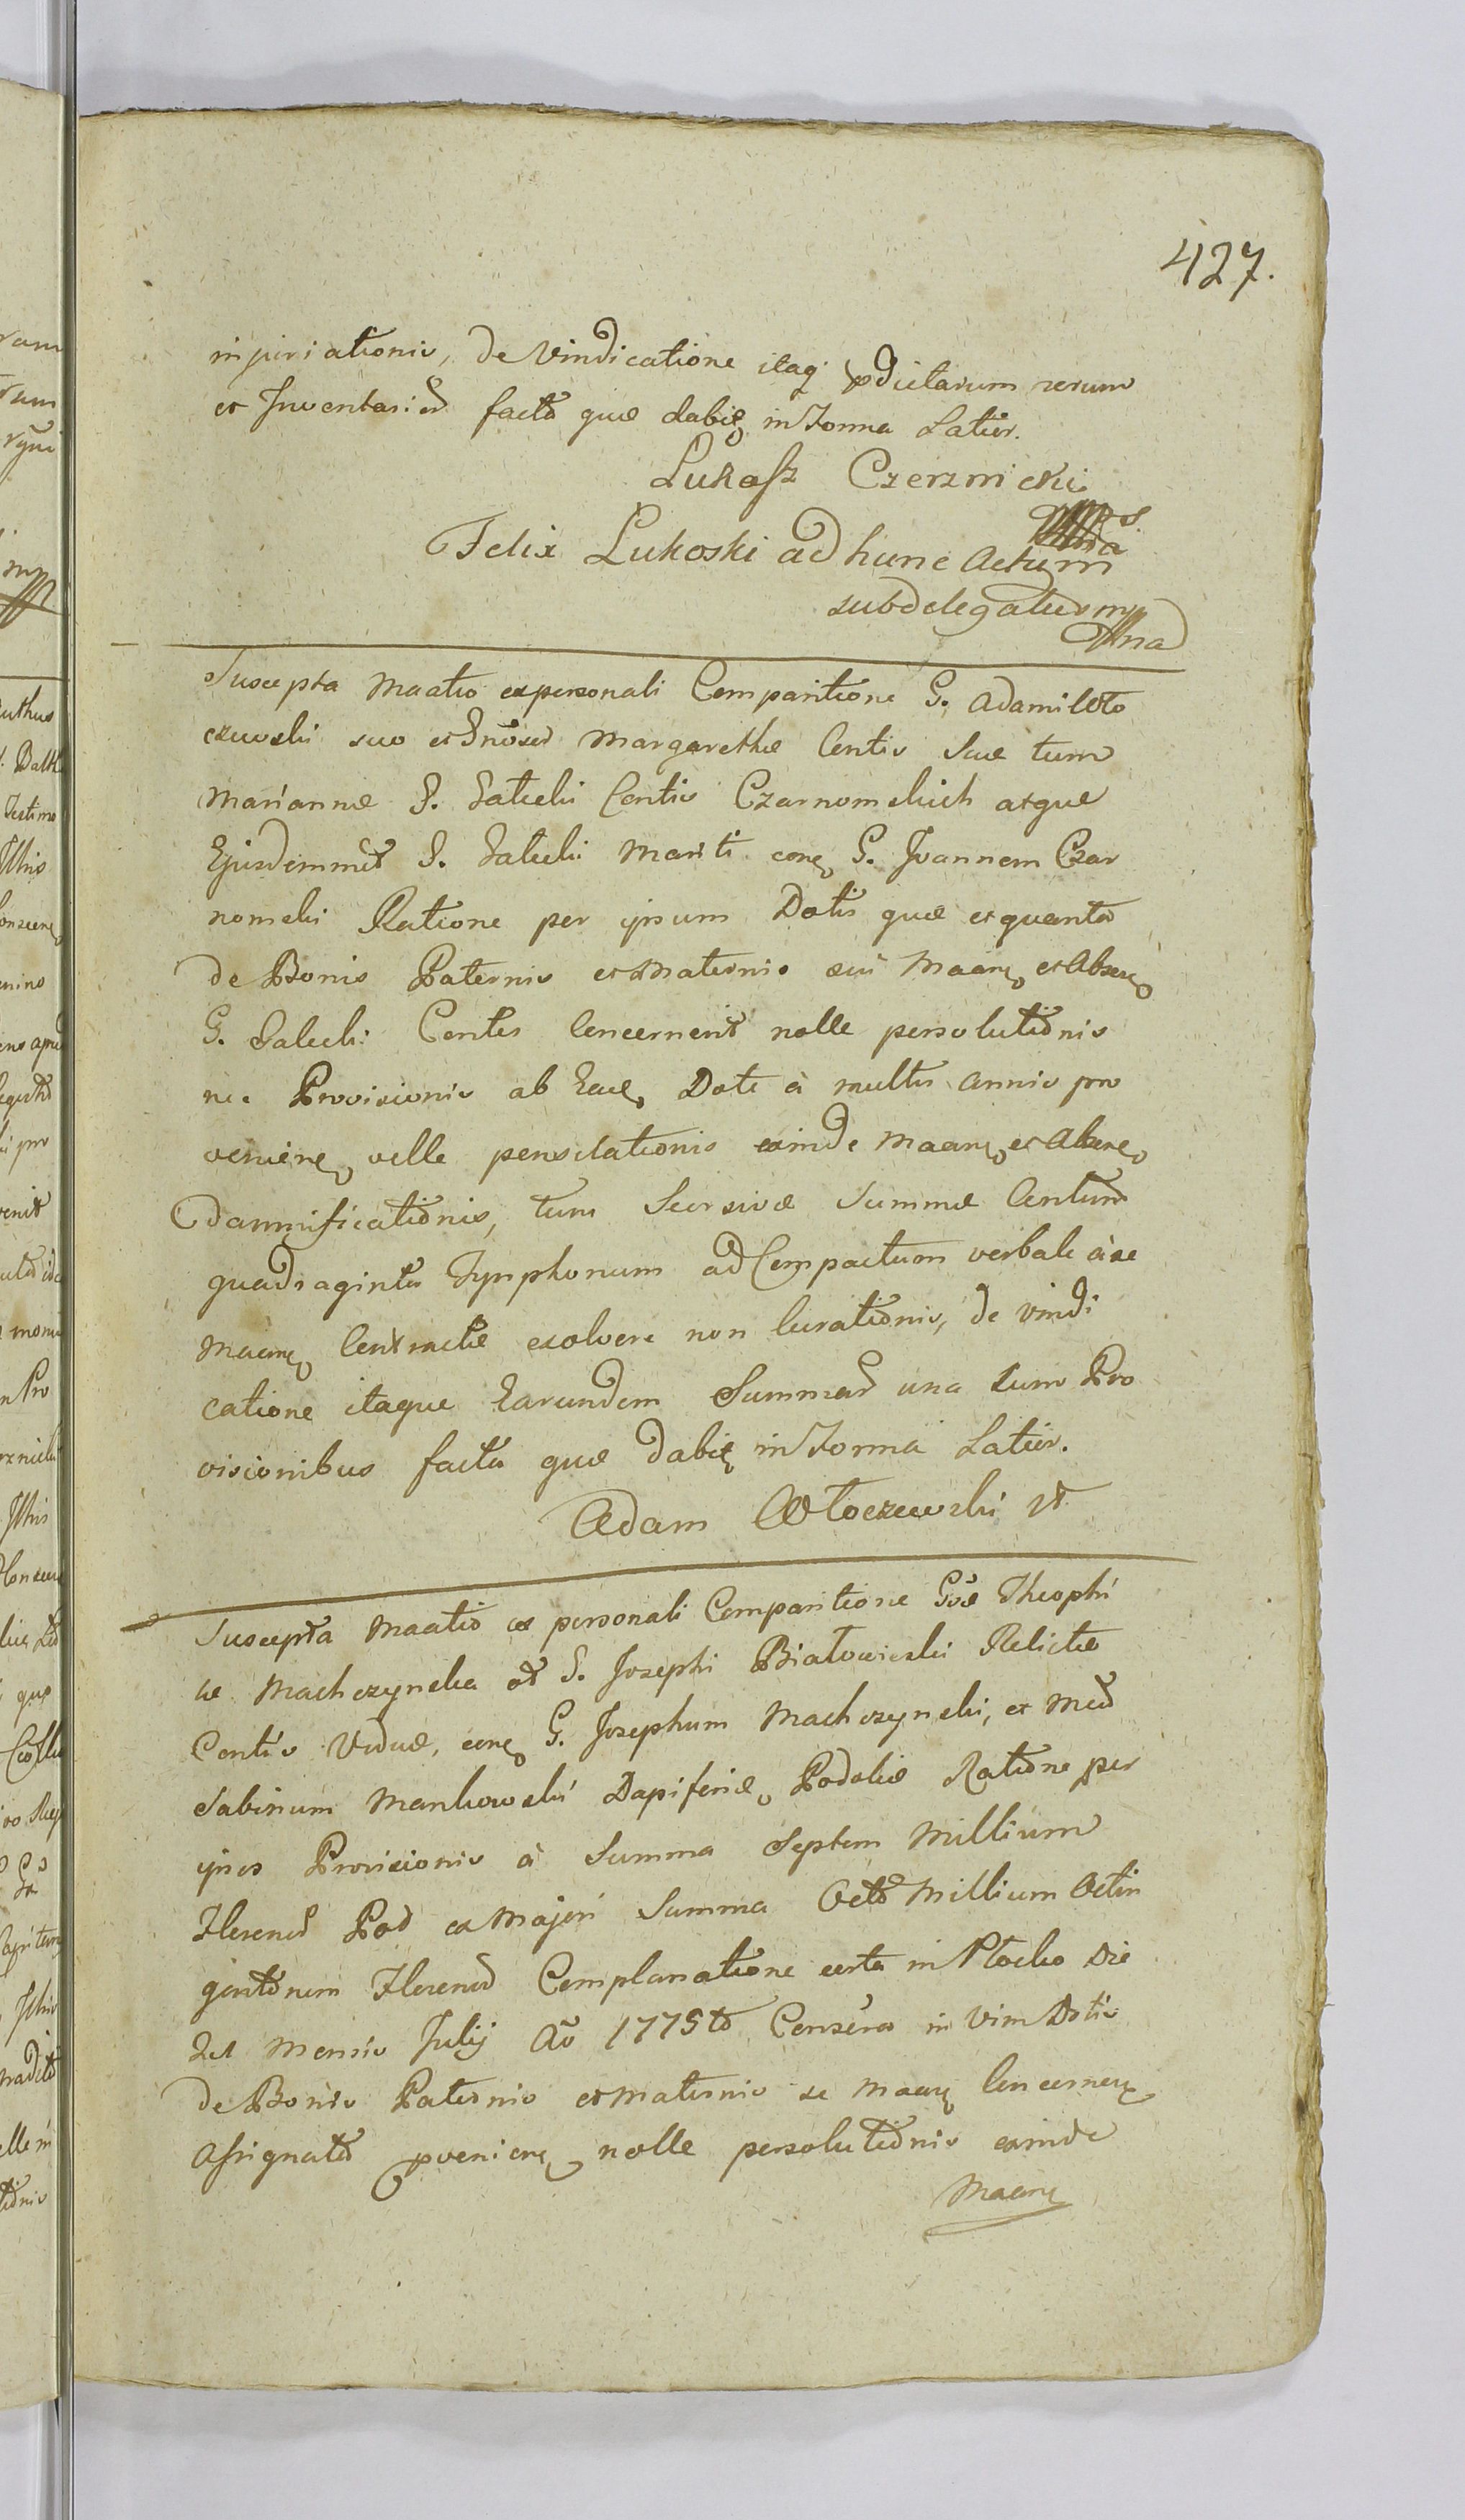 427.
injuriationis, de Vindicatione itaq pdictarum rerum
et Inventari: ed facto quæ dabit in Forma Latior.
Lukasz Czernicki
mpa
Felix Lukoski ad hunc Actum
subdelegatus mp
Suscepta Maatio ex personali Comparitione G. Adami Wło
czewski suo et Margarethæ Contis Suæ tum
Mariannæ Contis Czarnomskich atque
Ejusdemmet Mariti con G. Joannem Czar
nomski Ratione per ipsum Dotis quæ et quanta
de Bonis Paternis et Maternis sui Maane et Absen
G. Contes Concernent nolle persolutionis
nec Provisionis ab Dote à multis annis pro
venien velle pensitationis exinde Maane et Absene
damnificationis, tum Seorsivæ Summæ Centum
quadraginta Tynphonum ad Compactum verbale à se
Maane Contractæ exolvere non curationis, de vindi
catione itaque Earundem Summar una cum Pro
visionibus facta quæ dabit in Forma Latior.
Adam Włoczewski
Suscepta Maatio ex personali Comparitione Gsæ Theophi
læ Machczynska Josephi Białowieski Relictæ
Contis Viduæ, con G. Josephum Machczynski, et
Sabinum Mankowski Dapiferid Podoliæ Ratione per
ipsos Provisionis à Summa Septem Millium
Floren Pol ex Majori Summa Octo Millium Octin
gentorum Floren Complanatione certa in Płocko Die
Mensis Julij Ao 1775to Conscra in Vim Dotis
de Bonis Paternis et Maternis se Maane Concernen
Assignato pvenien nolle persolutionis exinde
Maane